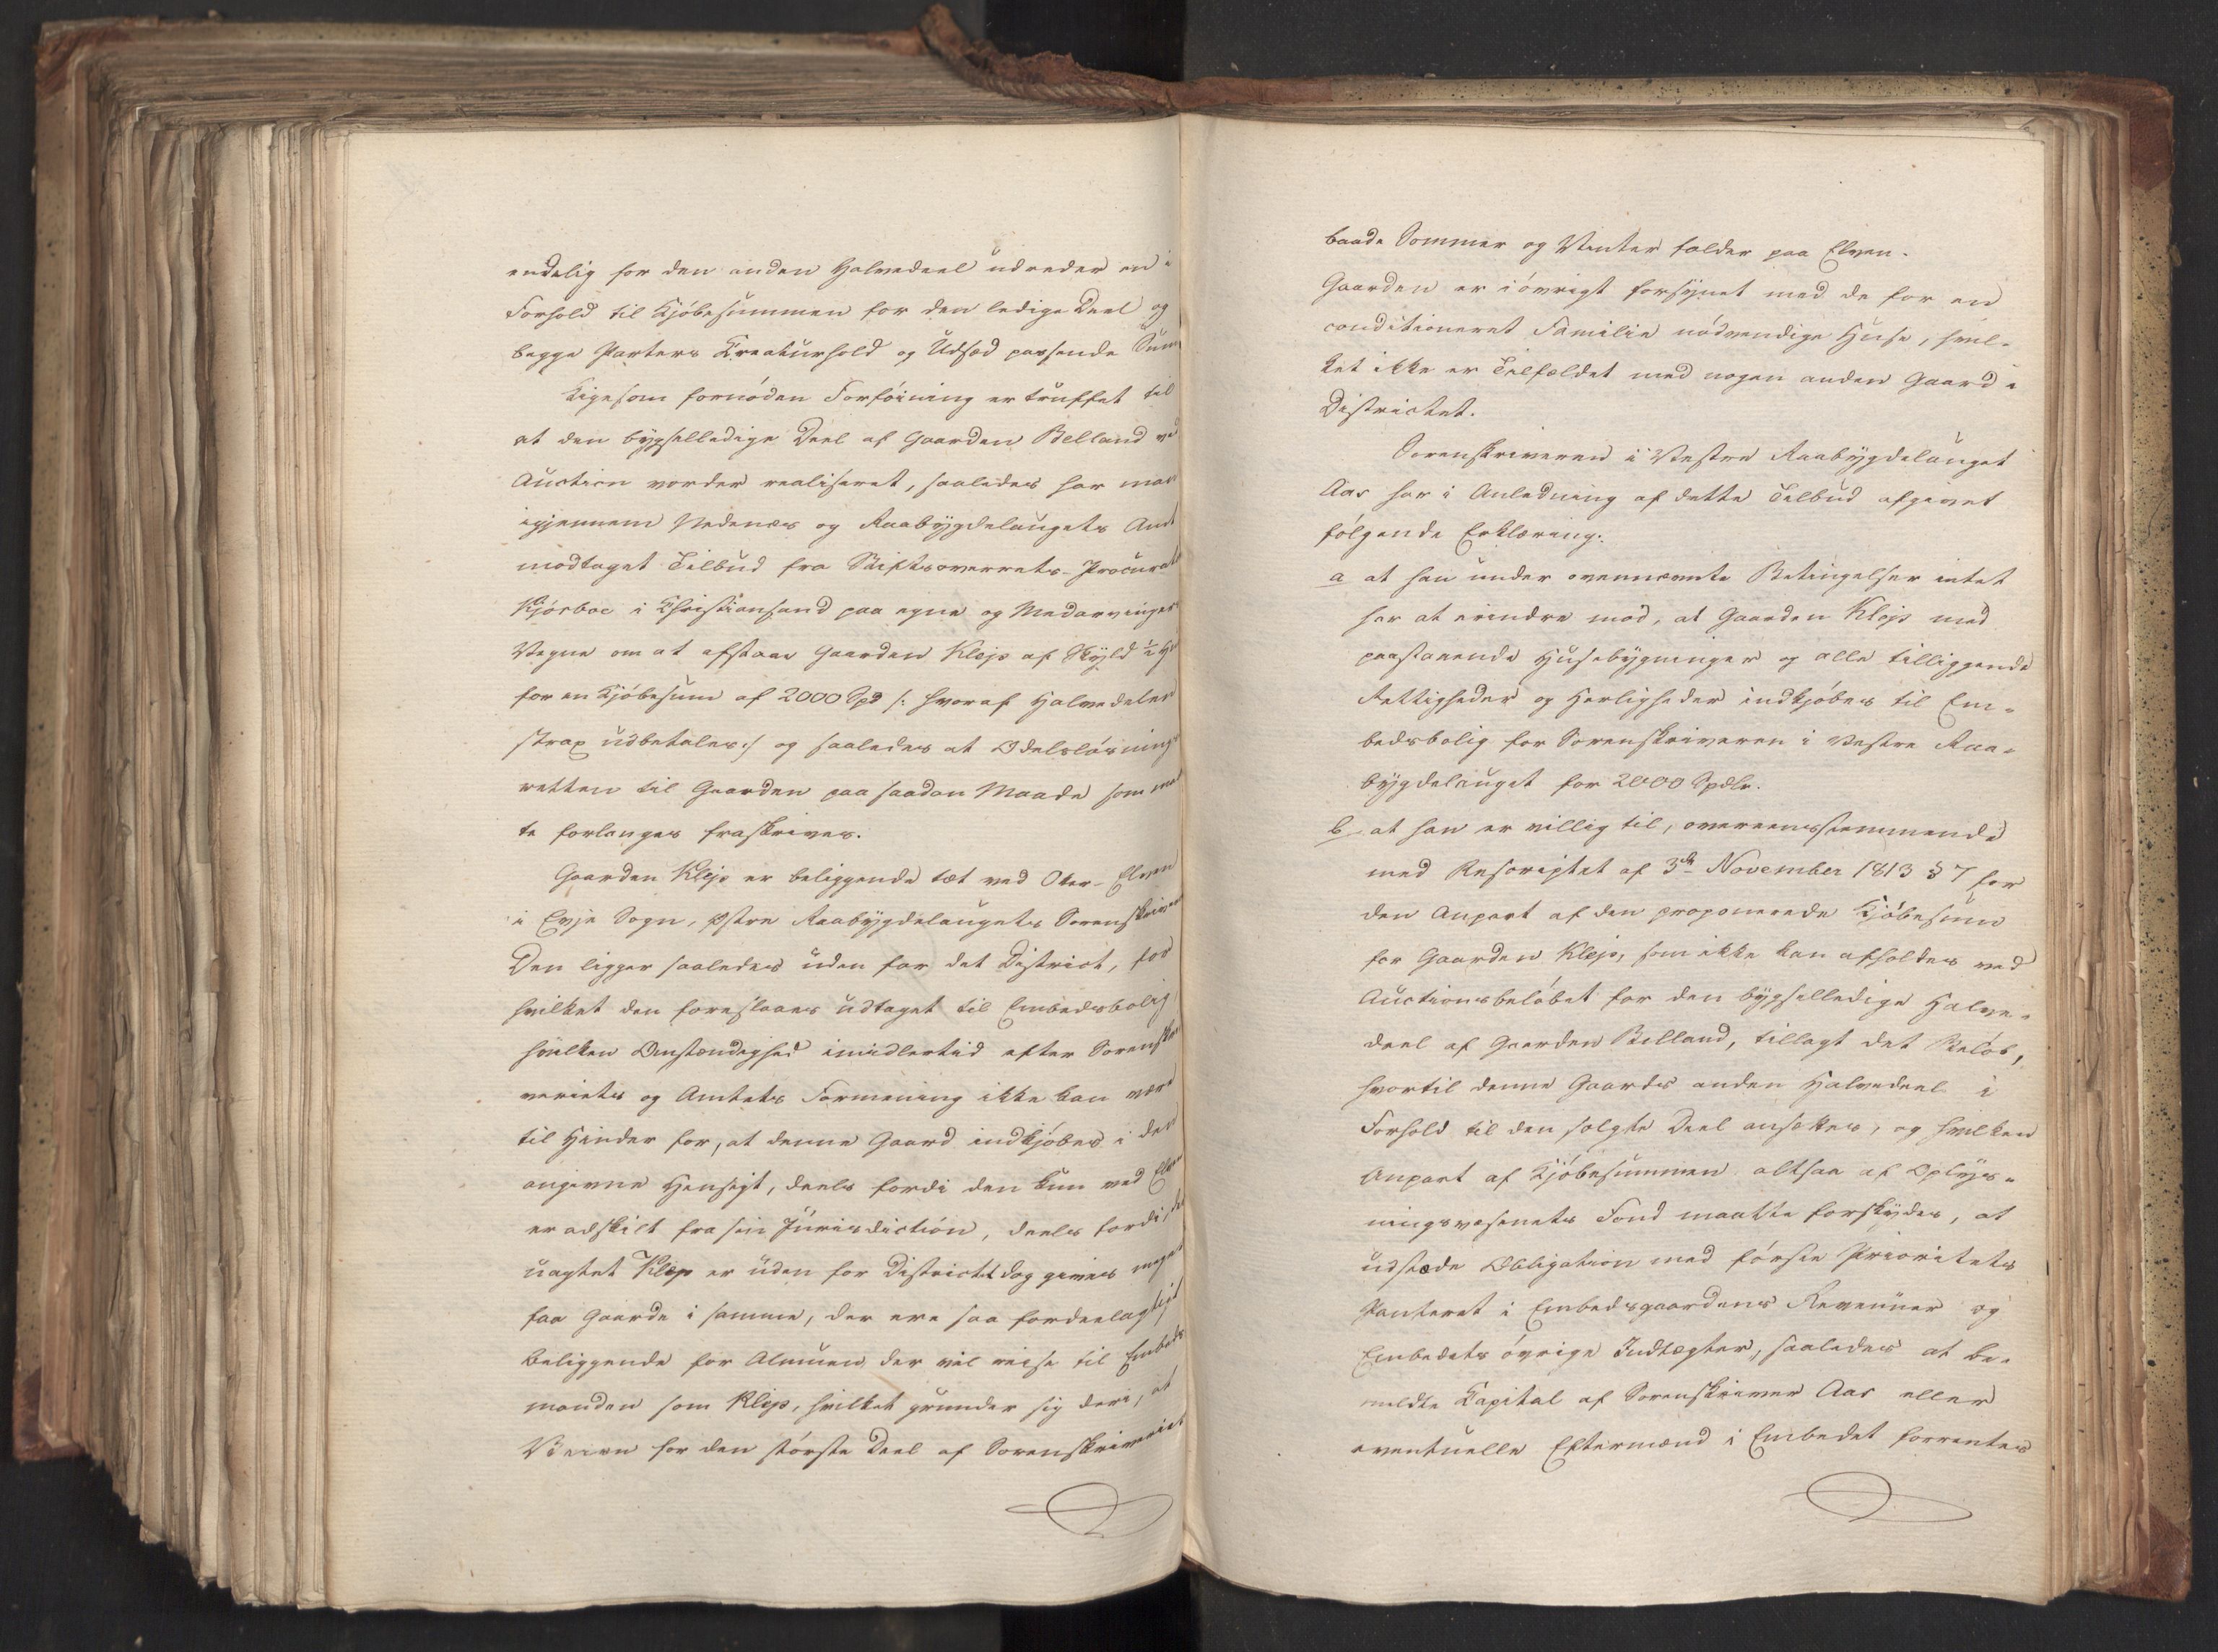 endelig for den anden Halvedeel udreder en i
Forhold til Kjöbesummen for den ledige Deel og
begge Parters Kreaturhold og Udsæd passende Sum
Ligesom fornöden Forföining er truffet til
at den bygselledige Deel af Gaarden Belland ved
Auction vorder realiseret, saaledes har man
igjennem Nedenæs og Raabygdelaugets Amt
modtaget Tilbud fra Stiftsoverrets-Procurator
Kjörboe i Christiansand paa egne og Medarvinger
Vegne om at afstaae Gaarden Klep af Skyld ½
for en Kjöbesum af 2000 Spd /: hvoraf Halvedelen
strax udbetales :/ og saaledes at Odelslösnings
retten til Gaarden paa saadan Maade som maat
te forlanges fraskrives.
Gaarden Klep er beliggende tæt ved Otter-Elven
i Evje Sogn, Østre Raabygdelaugets Sorenskriverie
Den ligger saaledes uden for det District, for
hvilket den foreslaaes udtaget til Embedsbolig,
hvilken Omstændighed imidlertid efter Sorenskri
veriets og Amtets Formening ikke kan være
til Hinder for, at denne Gaard indkjöbes i den
angivne Hensigt, deels fordi den kun ved Elven
er adskilt fra sin Jurisdiction, deels fordi, der
uagtet Klep er uden for Districtet dog gives meget
faa Gaarde i samme, der ere saa fordeelagtigt
beliggende for Almuen, der vil reise til Embeds
manden som Klep, hvilket grunder sig deri, at
Veien for den störste Deel af Sorenskriveriet
baade Sommer og Vinter falder paa Elven.
Gaarden er iövrigt forsynet med de for en
conditioneret Familie nödvendige Huse, hvil-
ket ikke er Tilfældet med nogen anden Gaard i
Districtet.
Sorenskriveren i Vestre Raabygdelauget
Aas har i Anledning af dette Tilbud afgivet
fölgende Erklæring:
a at han under ovennævnte Betingelser intet
har at erindre mod, at Gaarden Klep med
paastaaende Huusebygninger og alle tilliggende
Rettigheder og Herligheder indkjöbes til Em-
bedsbolig for Sorenskriveren i Vestre Raa-
bygdelauget for 2000 Spdlr.
b at han er villig til, overeensstemmende
med Rescriptet af 3die November 1813 § 7 for
den Anpart af den proponerede Kjöbesum
for Gaarden Klep, som ikke kan afholdes ved
Auctionsbelöbet for den bygselledige Halve-
deel af Gaarden Belland, tillagt det Belöb,
hvortil denne Gaards anden Halvedeel i
Forhold til den solgte Deel ansættes, og hvilken
Anpart af Kjöbesummen altsaa af Oplys-
ningsvæsenets Fond maatte forskydes, at
udstæde Obligation med förste Prioritets
Panteret i Embedsgaardens Revenuer og
Embedets övrige Indtægter, saaledes at be-
meldte Capital af Sorenskriver Aas eller
eventuelle Eftermænd i Embedet forrentes